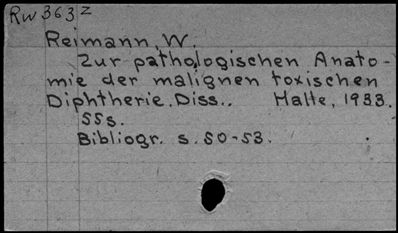 Rw 363 z
Reimann, W.
Zur pathologischen Anato-
mie der malignen toxischen
Diphtherie. Diss.. Halle, 1933.
55s.
Bibliogr. s. 50-53.